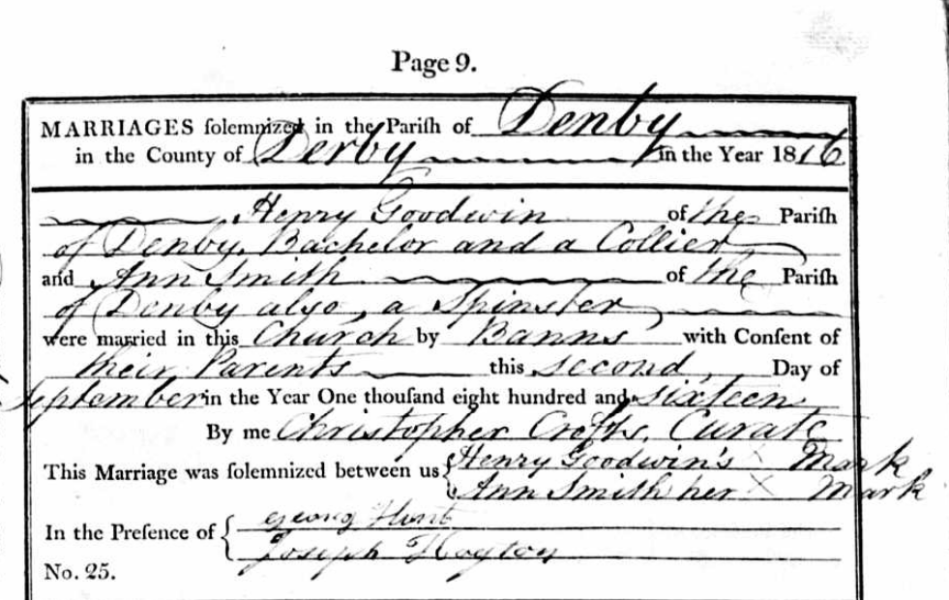 Page 9.
MARRIAGES ſolemnized in the Pariſh of Denby
in the County of Derby in the Year 1816
Henry Goodwin of the Pariſh
of Denby, Bachelor and a Collier
and Ann Smith of the Pariſh
of Denby also, a Spinster
were married in this Church by Banns with Conſent of
their Parents this second Day of
September in the Year One thouſand eight hundred and sixteen
By me Christopher Crofts, Curate
This Marriage was ſolemnized between us { Henry Goodwin's X Mark
Ann Smith her X Mark
In the Preſence of { Georg Hunt
Joseph
No. 25.